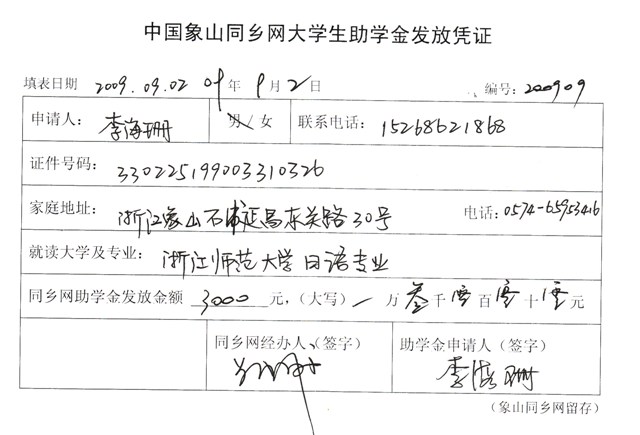 中国象山同乡网大学生助学金发放凭证
填表日期 2009.09.02 09年9月2日 编号：200909
申请人： 李海珊 男/女 联系电话： 15268621868
证件号码： 330225199003310326
家庭地址： 浙江象山石浦延昌东关路30号 电话：0574-65953416
就读大学及专业： 浙江师范大学 日语专业
同乡网助学金发放金额 3000 元，（大写） 万 叁 千 零 百 零 十 零 元
同乡网经办人（签字） 助学金申请人（签字）
李海珊
（象山同乡网留存）